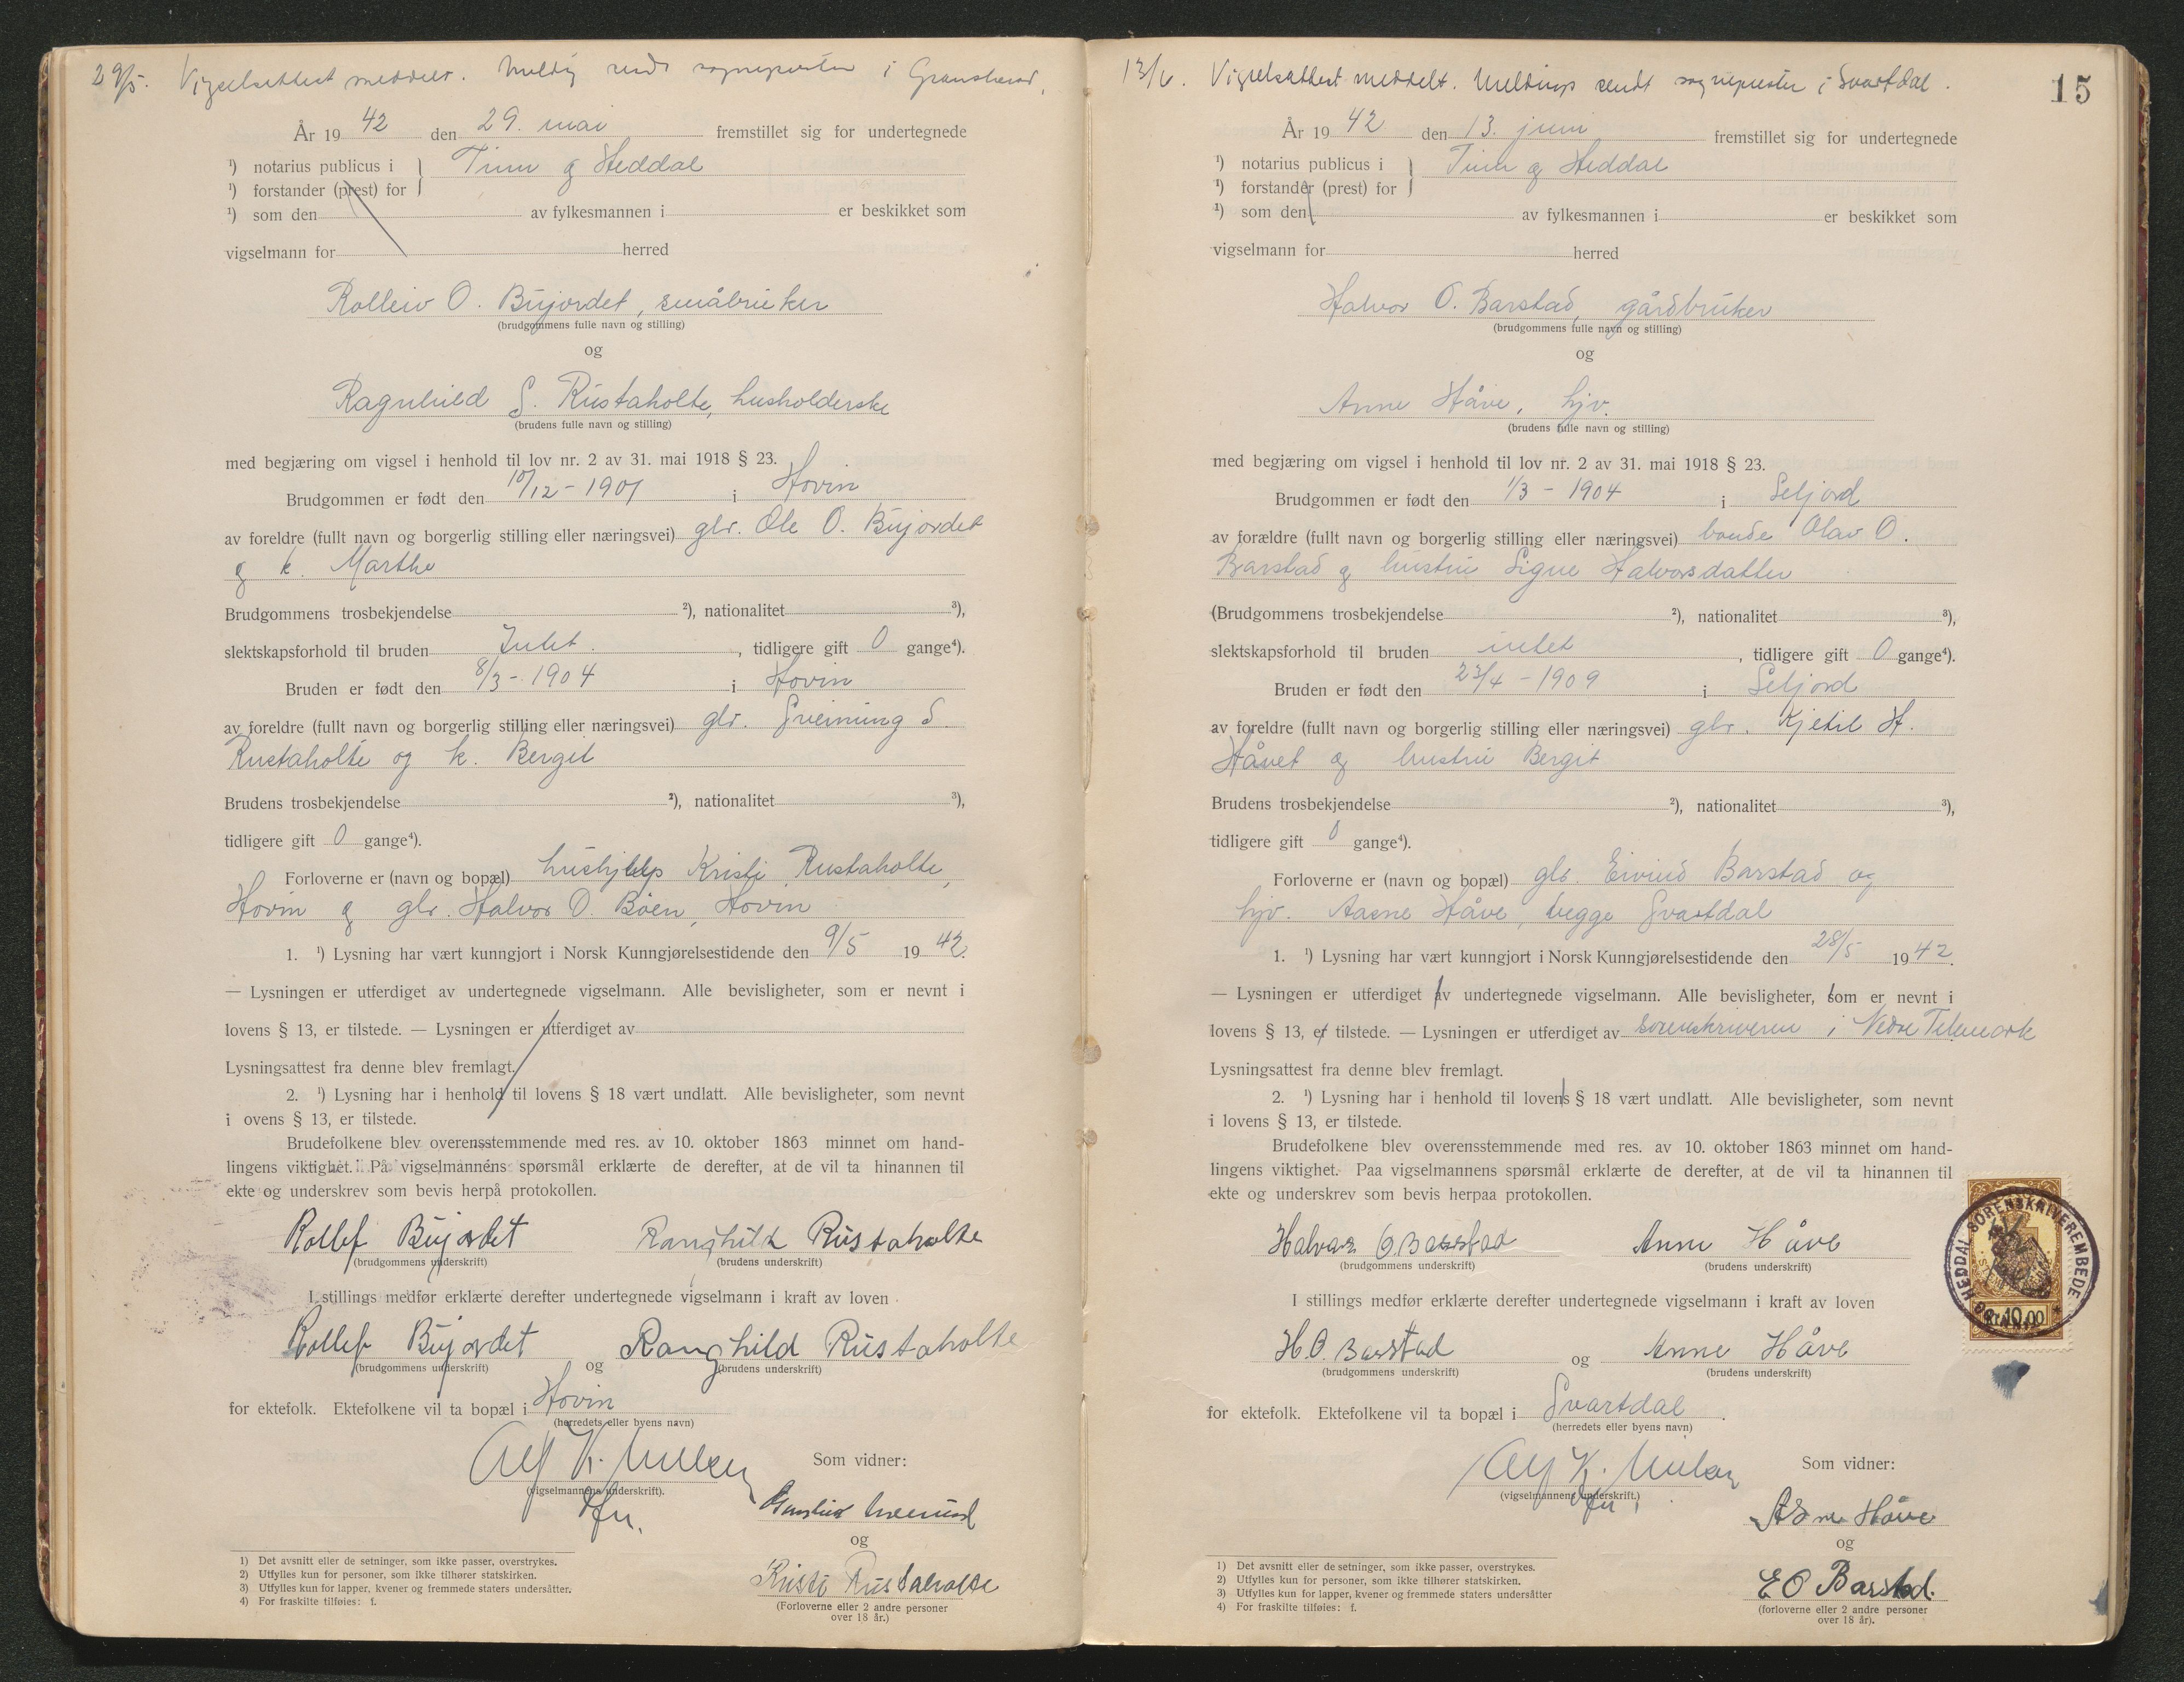 29/5. Vigselsattest meddelt. Melding sendt sognepresten i Gransherad.
År 1942 den 29. mai fremstillet sig for undertegnede
¹) notarius publicus i } Tinn og Heddal
¹) forstander (prest) for
¹) som den av fylkesmannen i er beskikket som
vigselmann for herred
Rolleiv O. Bujordet, småbruker
(brudgommens fulle navn og stilling)
og
Ragnhild S. Rustaholte, husholderske
(brudens fulle navn og stilling)
med begjæring om vigsel i henhold til lov nr. 2 av 31. mai 1918 § 23.
Brudgommen er født den 10/12 - 1901 i Hovin
av foreldre (fullt navn og borgerlig stilling eller næringsvei) gbr. Ole O. Bujordet
og k. Marthe
Brudgommens trosbekjendelse ²), nationalitet ³),
slektskapsforhold til bruden Intet. , tidligere gift 0 gange⁴).
Bruden er født den 8/3 - 1904 i Hovin
av foreldre (fullt navn og borgerlig stilling eller næringsvei) gbr. Sveinung S.
Rustaholte og k. Bergit
Brudens trosbekjendelse ²), nationalitet ³),
tidligere gift 0 gange⁴).
Forloverne er (navn og bopæl) hushjelp Kristi Rustaholte,
Hovin og gbr. Halvor O. Bøen, Hovin
1. ¹) Lysning har vært kunngjort i Norsk Kunngjørelsestidende den 9/5 1942.
— Lysningen er utferdiget av undertegnede vigselmann. Alle bevisligheter, som er nevnt i
lovens § 13, er tilstede. — Lysningen er utferdiget av
Lysningsattest fra denne blev fremlagt.
2. ¹) Lysning har i henhold til lovens § 18 vært undlatt. Alle bevisligheter, som nevnt
i ovens § 13, er tilstede.
Brudefolkene blev overensstemmende med res. av 10. oktober 1863 minnet om hand-
lingens viktighet. På vigselmannens spørsmål erklærte de derefter, at de vil ta hinannen til
ekte og underskrev som bevis herpå protokollen.
Rollef Bujordet Ranghild Rustaholte
(brudgommens underskrift) (brudens underskrift)
I stillings medfør erklærte derefter undertegnede vigselmann i kraft av loven
Rollef Bujordet og Ranghild Rustaholte
(brudgommens underskrift) (brudens underskrift)
for ektefolk. Ektefolkene vil ta bopæl i Hovin
(herredets eller byens navn)
Alf K. Som vidner:
(vigselmannens underskrift).
og
Kristi Rustaholte
(Forloverne eller 2 andre personer
over 18 år.)
1) Det avsnitt eller de setninger, som ikke passer, overstrykes.
2) Utfylles kun for personer, som ikke tilhører statskirken.
3) Utfylles kun for lapper, kvener og fremmede staters undersåtter.
4) For fraskilte tilføies: f.
15
13/6. Vigselsattest meddelt. Melding sendt sognepresten i Svartdal.
År 1942 den 13. juni fremstillet sig for undertegnede
¹) notarius publicus i } Tinn og Heddal
¹) forstander (prest) for
¹) som den av fylkesmannen i er beskikket som
vigselmann for herred
Halvor O. Barstad, gårdbruker
(brudgommens fulle navn og stilling)
og
Anne Håve, hjv.
(brudens fulle navn og stilling)
med begjæring om vigsel i henhold til lov nr. 2 av 31. mai 1918 § 23.
Brudgommen er født den 1/3 - 1904 i Seljord
av forældre (fullt navn og borgerlig stilling eller næringsvei) bonde Olav O.
Barstad og hustru Signe Halvorsdatter
(Brudgommens trosbekjendelse ²), nationalitet ³),
slektskapsforhold til bruden intet , tidligere gift 0 gange⁴).
Bruden er født den 23/4 - 1909 i Seljord
av foreldre (fullt navn og borgerlig stilling eller næringsvei) gbr. Kjetil H.
Håvet og hustru Bergit
Brudens trosbekjendelse ²), nationalitet ³),
tidligere gift 0 gange⁴).
Forloverne er (navn og bopæl) gbr. Eivind Barstad og
hjv. Aasne Håve, begge Svartdal
1. ¹) Lysning har vært kunngjort i Norsk Kunngjørelsestidende den 28/5 1942.
— Lysningen er utferdiget av undertegnede vigselmann. Alle bevisligheter, som er nevnt i
lovens § 13, er tilstede. — Lysningen er utferdiget av sorenskriveren i Nedre Telemark
Lysningsattest fra denne blev fremlagt.
2. ¹) Lysning har i henhold til lovens § 18 vært undlatt. Alle bevisligheter, som nevnt
i lovens § 13, er tilstede.
Brudefolkene blev overensstemmende med res. av 10. oktober 1863 minnet om hand-
lingens viktighet. Paa vigselmannens spørsmål erklærte de derefter, at de vil ta hinannen til
ekte og underskrev som bevis herpaa protokollen.
Halvor O Barstad Anne Håve
(brudgommens underskrift) (brudens underskrift)
I stillings medfør erklærte derefter undertegnede vigselmann i kraft av loven
H.O. Barstad og Anne Håve
(brudgommens underskrift) (brudens underskrift)
for ektefolk. Ektefolkene vil ta bopæl i Svartdal.
(herredets eller byens navn)
Alf K. Som vidner:
(vigselmannens underskrift.)
Håve
og
E O Barstad.
(forloverne eller 2 andre personer
over 18 år).
1) Det avsnitt eller de setninger, som ikke passer, overstrykes.
2) Utfylles kun for personer, som ikke tilhører statskirken.
3) Utfylles kun for lapper, kvener og fremmede staters undersåtter
4) For fraskilte tilføies: f.
HEDDAL SORENSKRIVEREMBEDE
Kr. 10.00